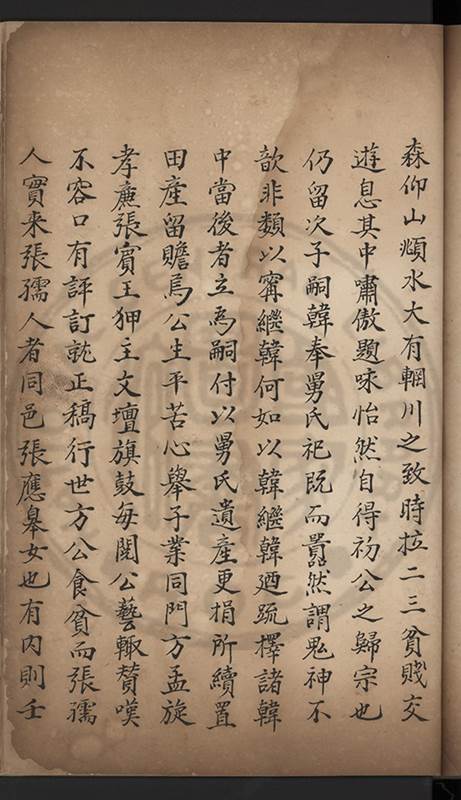 森仰山頫水大有輞川之致時拉二三貧賤交
遊息其中嘯傲題咏怡然自得初公之歸宗也
仍留次子嗣韓奉舅氏祀既而囂然謂鬼神不
歆非類以甯繼韓何如以韓繼韓廼疏擇諸韓
中當後者立為嗣付以舅氏遺產更捐所續置
田產留贍焉公生平苦心舉子業同門方孟旋
孝廉張賓王狎主文壇旗鼓每閱公藝輒賛嘆
不容口有評訂就正稿行世方公食貧而張孺
人實来張孺人者同邑張應臯女也有内則壬